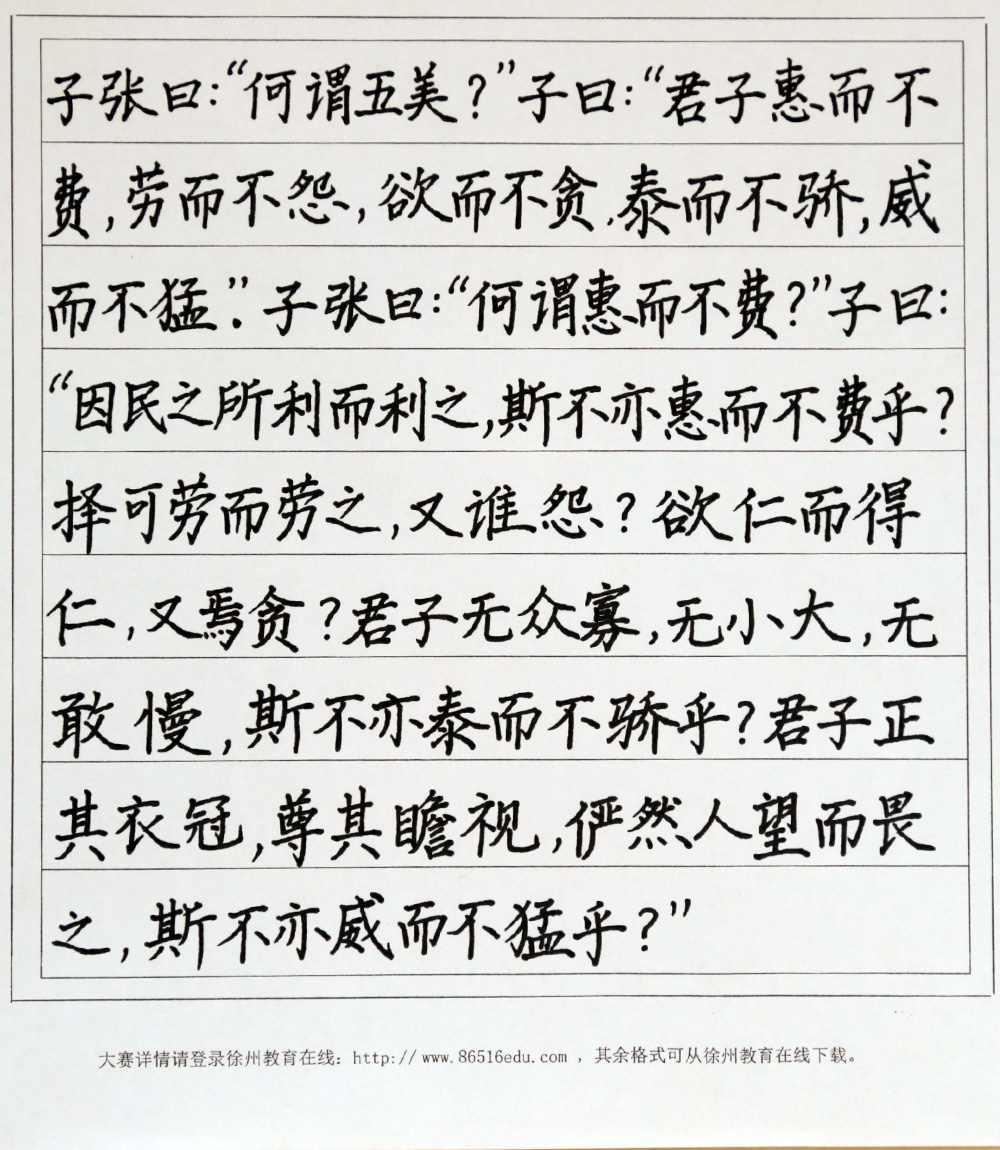 子张曰:“何谓五美?”子曰:“君子惠而不
费,劳而不怨,欲而不贪,泰而不骄,威
而不猛”。子张曰:“何谓惠而不费?”子曰:
“因民之所利而利之,斯不亦惠而不费乎?
择可劳而劳之,又谁怨?欲仁而得
仁,又焉贪?君子无众寡,无小大,无
敢慢,斯不亦泰而不骄乎?君子正
其衣冠,尊其瞻视,俨然人望而畏
之,斯不亦威而不猛乎?”
大赛详情请登录徐州教育在线:http://www.86516edu.com ,其余格式可从徐州教育在线下载。